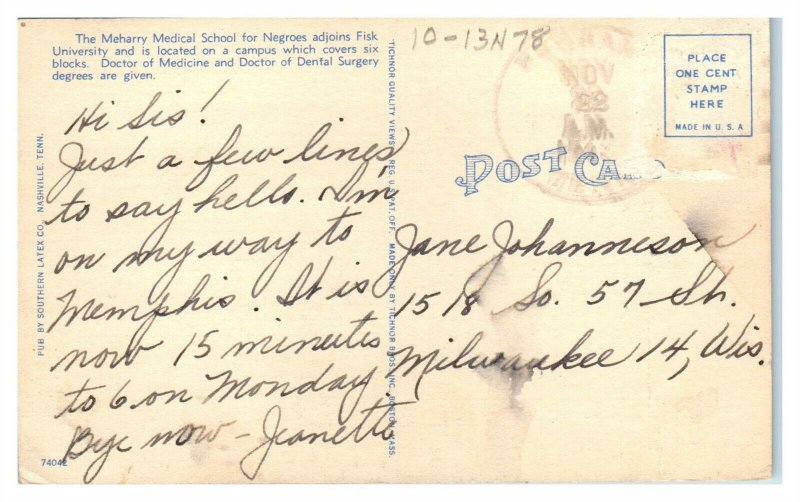 The Meharry Medical School for Negroes adjoins Fisk
University and is located on a campus which covers six
blocks. Doctor of Medicine and Doctor of Dental Surgery
degrees are given.
Hi Sis!
Just a few lines
to say hello. I'm
on my way to
Memphis. It is
now 15 minutes
to 6 on Monday.
Bye now - Jeanette
74042
PUB. BY SOUTHERN LATEX CO., NASHVILLE, TENN.
TICHNOR QUALITY VIEWS, REG. U. S. PAT. OFF. MADE ONLY BY TICHNOR BROS., INC., BOSTON, MASS.
10-13N78
NOV
22
A.M.
PLACE
ONE CENT
STAMP
HERE
MADE IN U. S. A
POST CARD
Jane Johanneson
1518 So. 57 St.
Milwaukee 14, Wis.